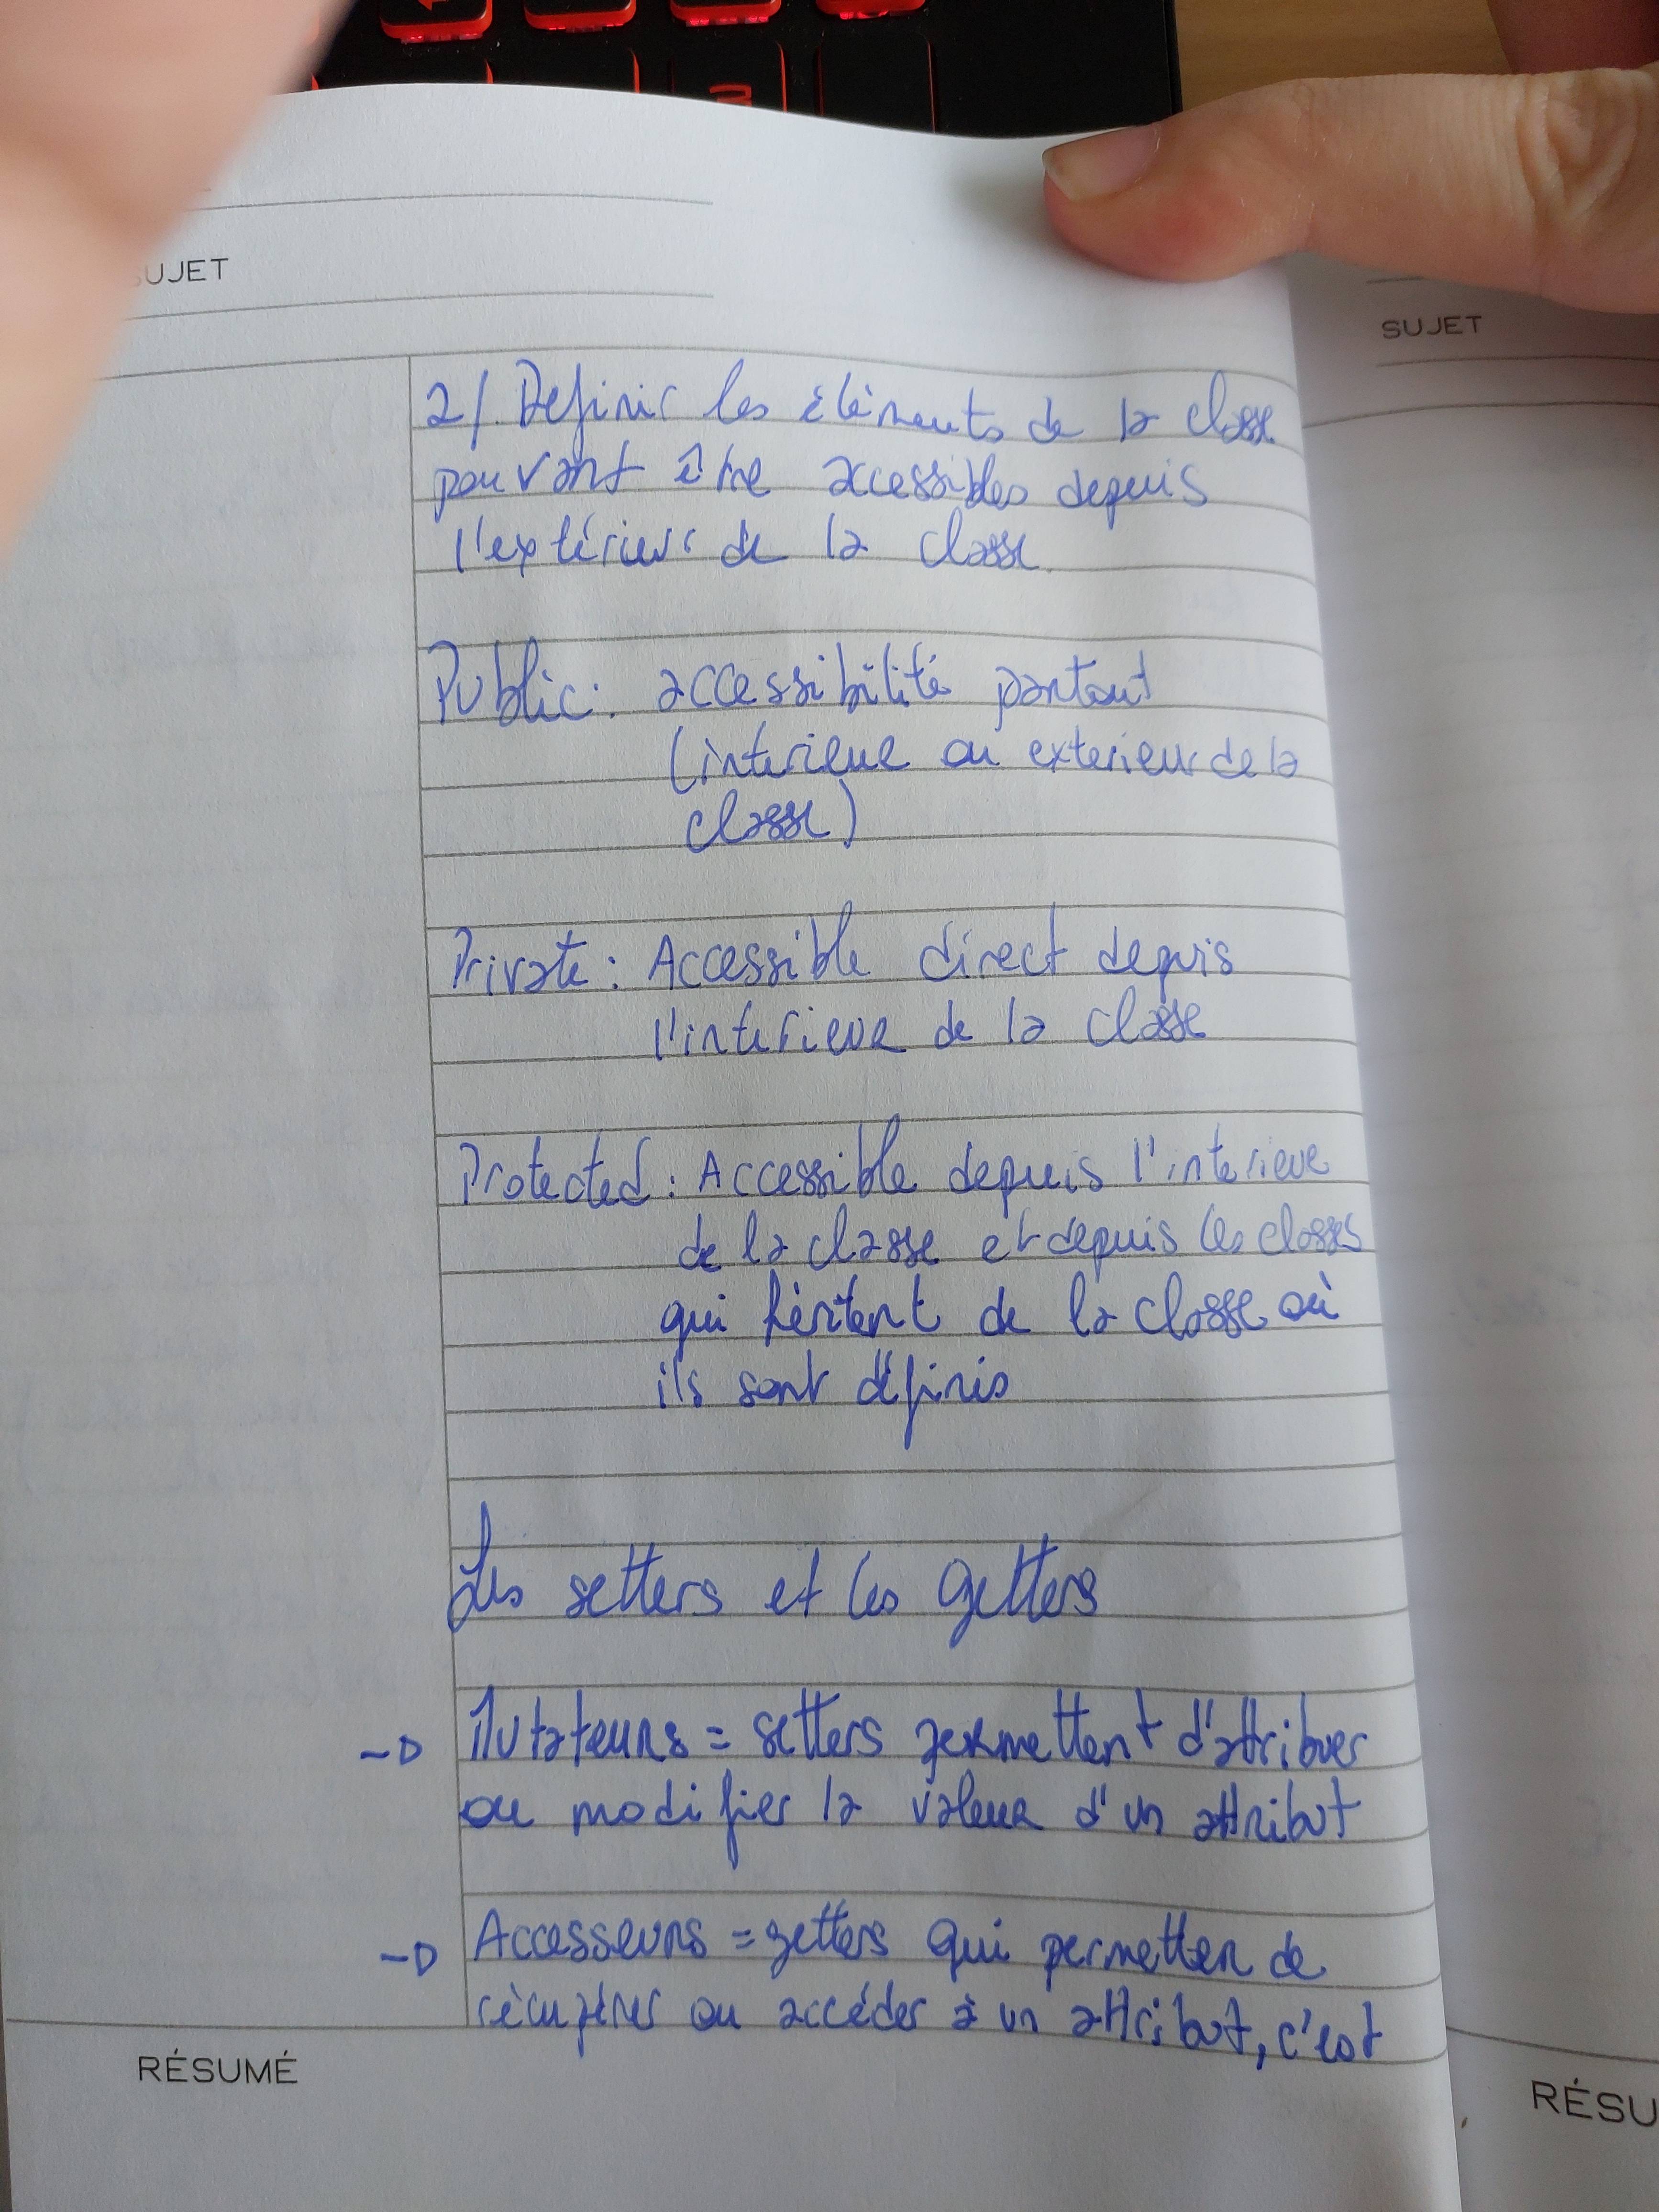 SUJET
SUJET
2/ Définir les éléments de la classe
pouvant être accessibles depuis
l'extérieur de la classe.
Public: accessibilité partout
(interieur ou exterieur de la
classe)
Private: Accessible direct depuis
l'interieur de la classe
Protected: Accessible depuis l'interieur
de la classe et depuis les classes
qui héritent de la classe où
ils sont définis
Les setters et les getters
→ Mutateurs = setters permettent d'attribuer
ou modifier la valeur d'un attribut
→ Accesseurs = getters qui permetten de
récupérer ou accéder à un attribut, c'est
RÉSUMÉ
RÉSU